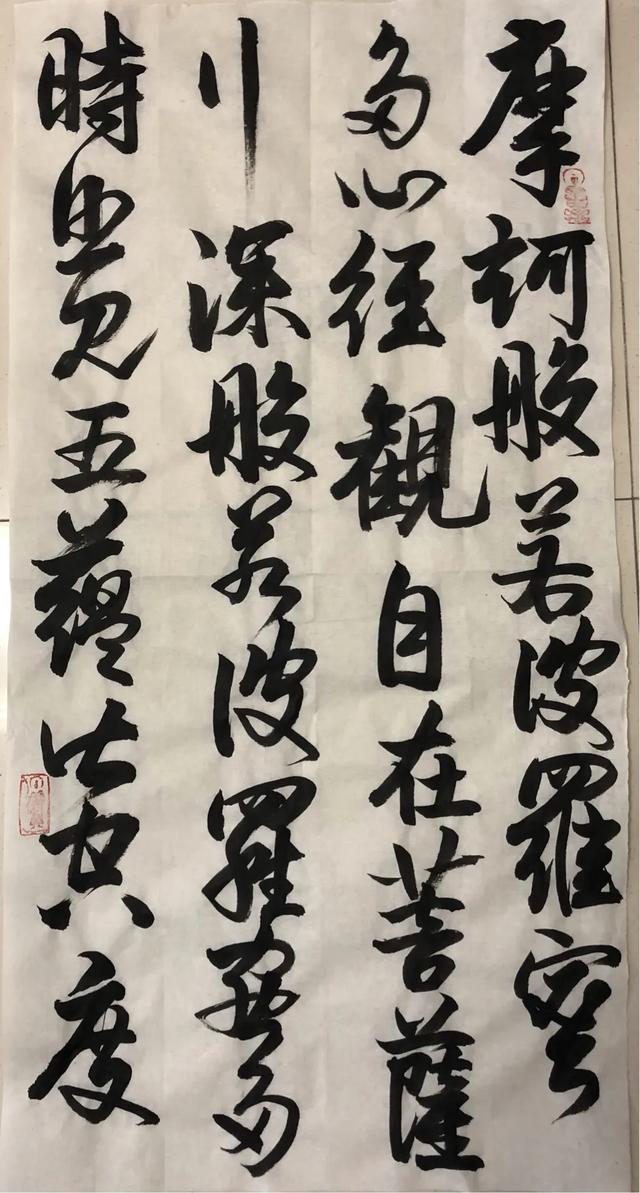 摩訶般若波羅蜜
多心經觀自在菩薩
行深般若波羅蜜多
時照見五蘊皆空度